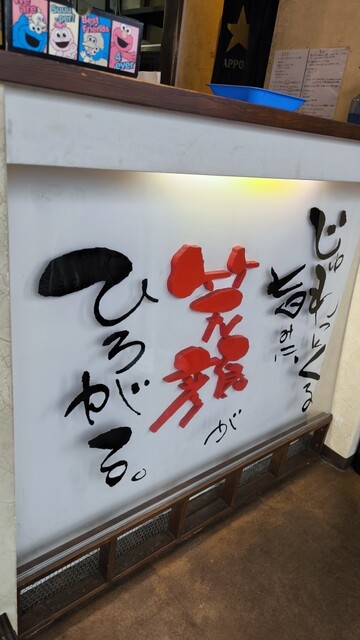 じゅわっとくる
旨みに、
笑顔
が
ひろ
がる。
Best
Friends
APPO